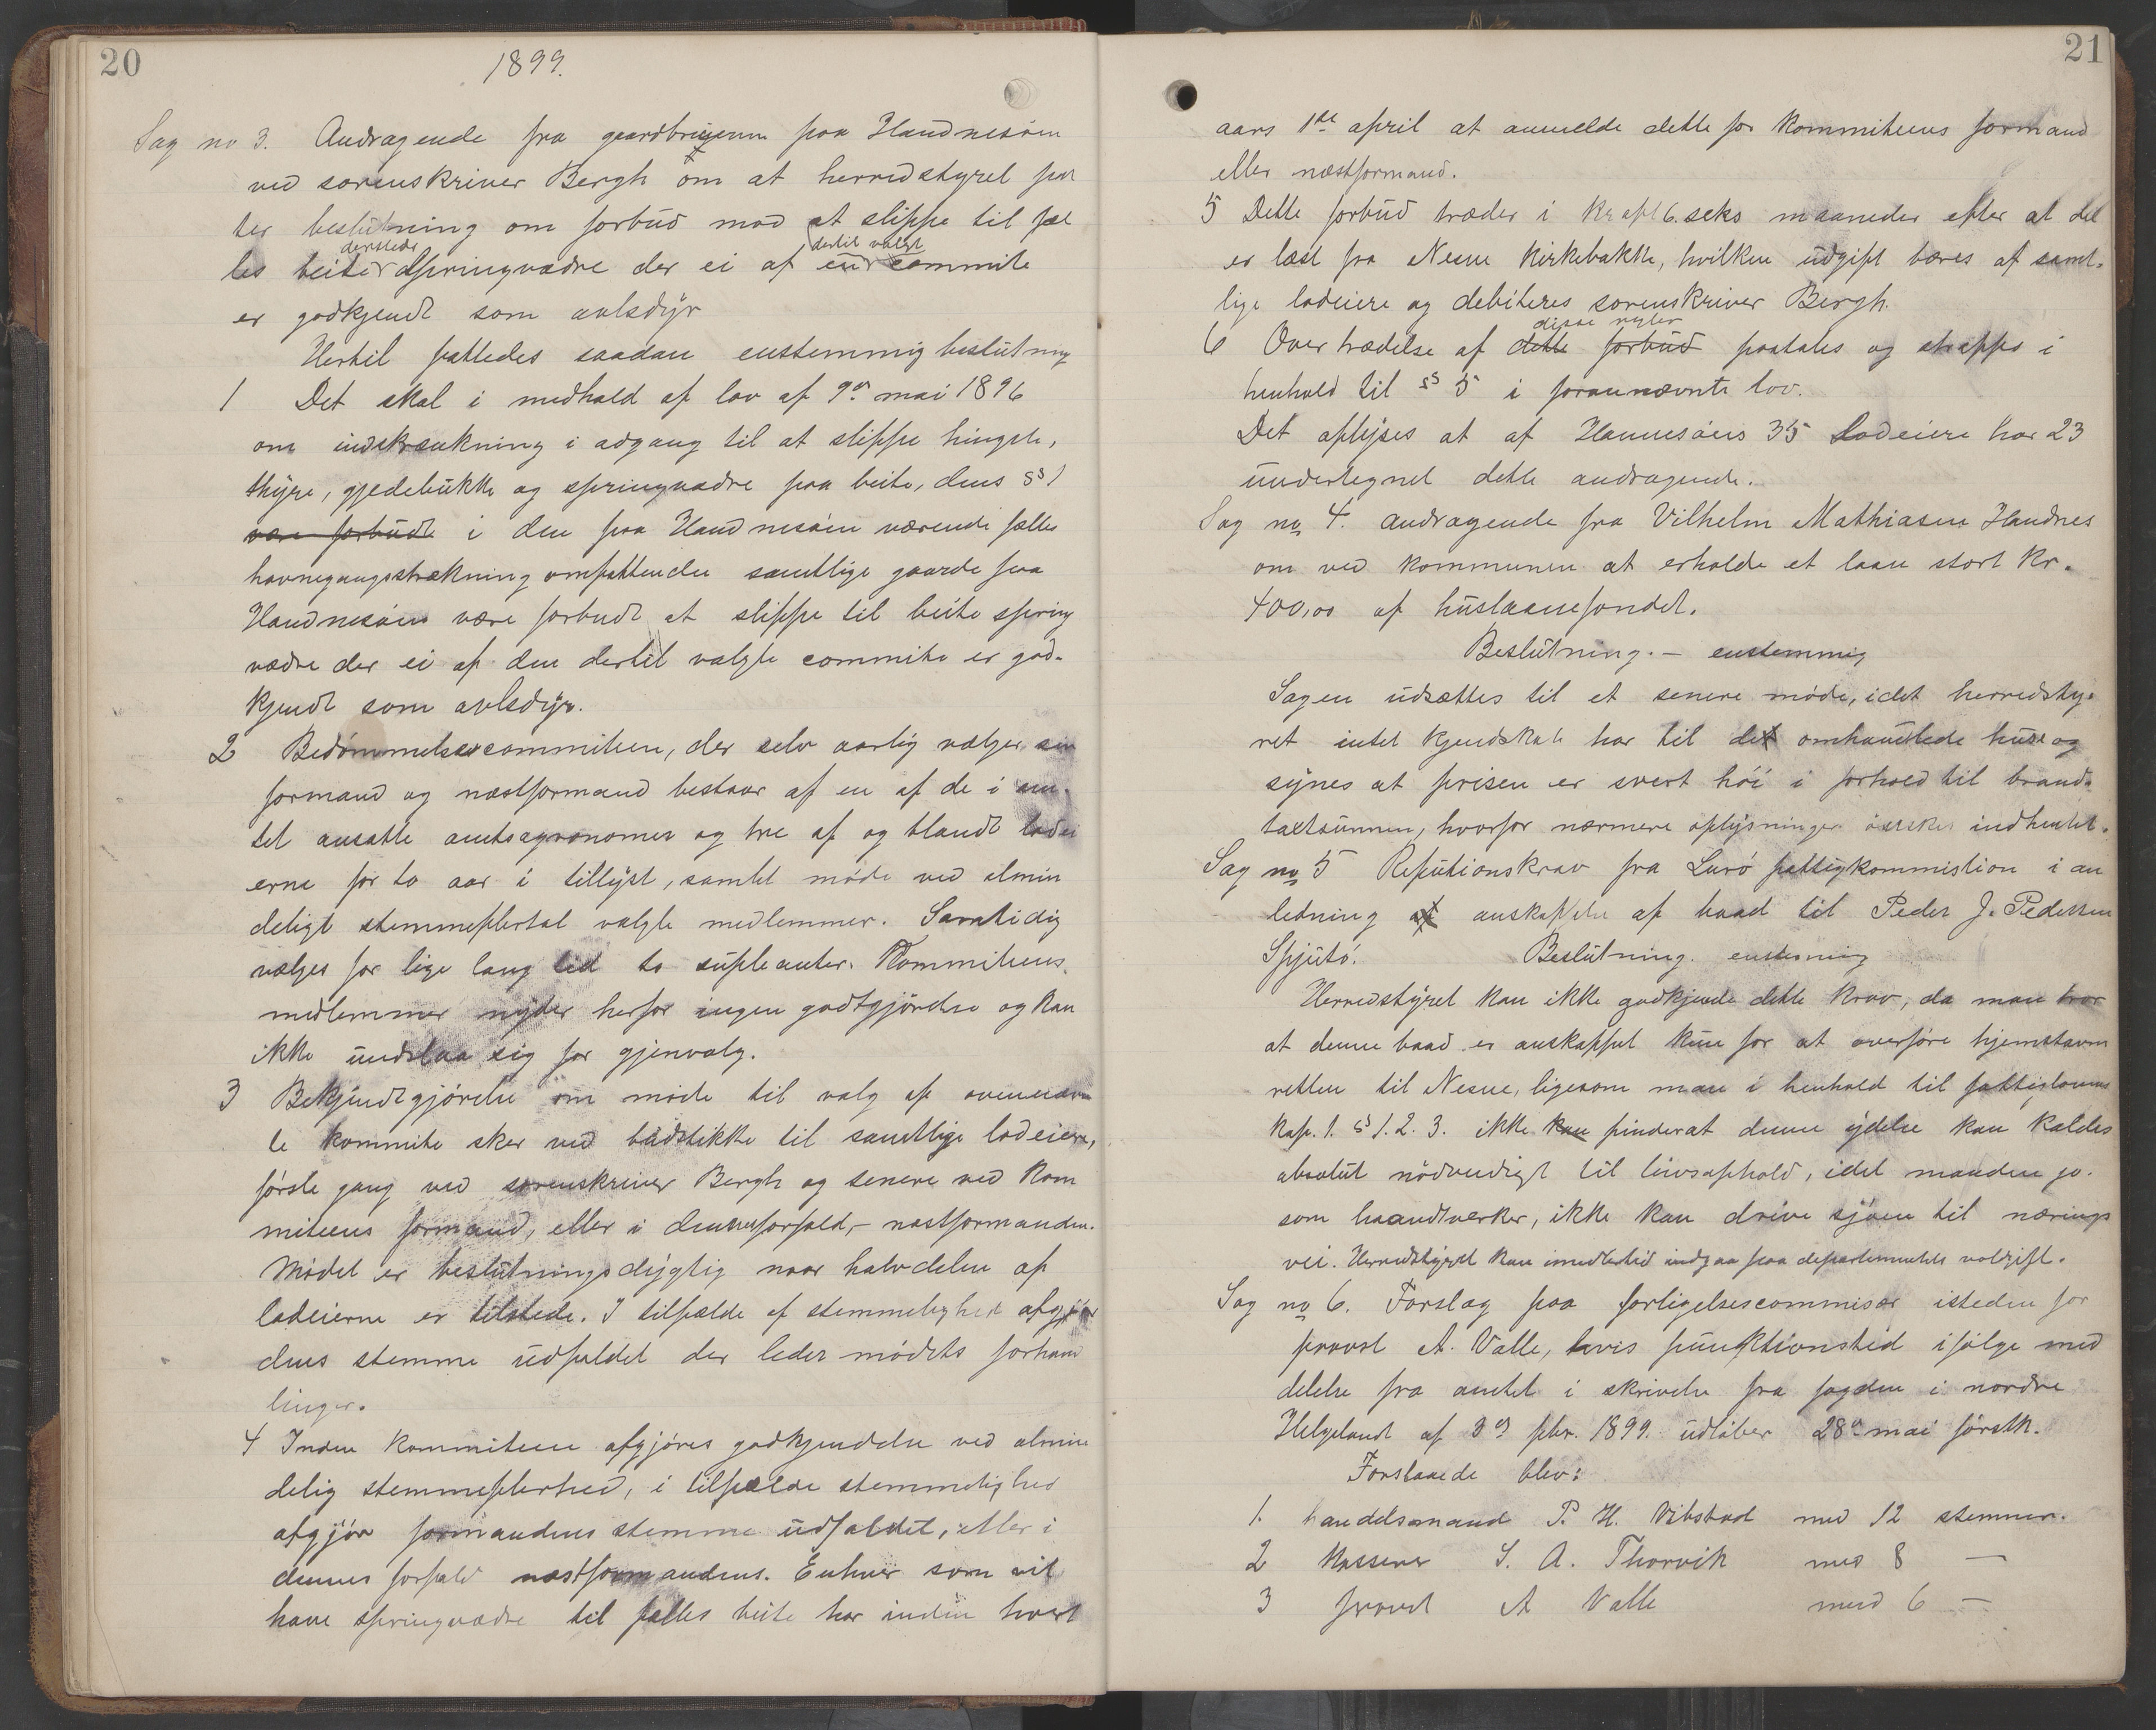 20
1899.
Sag no 3. Andragende fra gaardbrugerne paa Handnesøen
ved sorenskriver Bergh om at herredstyret fat
ter beslutning om forbud mod at slippe til fæl
les beite dersteds springvædre der ei af en dertil valgt commite
er godkjendt som avlsdyr
Hertil fattedes saadan enstemmig beslutning
1 Det skal i medhold af lov af 9de mai 1896
om indskrænkning i adgang til at slippe hingste,
thyre, gjedebukke og springvædre paa beite, dens §§ 1
være forbudt i den paa Handnesøen værende fælles
havnegangsstrækning omfattende samtlige gaarde paa
Handnesøen være forbudt at slippe til beite spring
vædre der ei af den dertil valgte commite er god-
kjendt som avlsdyr.
2 Bedømmelsescommiteen, der selv aarlig vælger sin
formand og næstformand bestaar af en af de i am-
tet ansatte amtsagronomer og tre af og blandt lodei
erne for to aar i tillyst, samlet møde ved almin
deligt stemmeflertal valgte medlemmer. Samtidig
vælges for lige lang tid to supleanter. Kommiteens
medlemmer nyder herfor ingen godtgjørelse og kan
ikke undslaa sig for gjenvalg.
3 Bekjendtgjørelse om møde til valg af ovennævn
te kommite sker ved budstikke til samtlige lodeiere,
første gang ved sorenskriver Bergh og senere ved kom
miteens formand, eller i dennes forfald, - næstformanden.
Mødet er beslutningsdygtig naar halvdelen af
lodeierne er tilstede. I tilfælde af stemmelighed afgjør
dens stemme udfaldet der leder mødets forhand
linger.
4 Inden kommiteen afgjøres godkjendelse ved almin
delig stemmeflerhed, i tilfælde stemmelighed
afgjør formandens stemme udfaldet, eller i
dennes forfald næstformandens. Enhver som vil
have springvædre til fælles beite har inden hvert
21
aars 1ste april at anmelde dette for kommiteens formand
eller næstformand.
5 Dette forbud træder i kraft 6. seks maaneder efter at det
er læst fra Nesne kirkebakke, hvilken udgift bæres af samt-
lige lodeiere og debiteres sorenskriver Bergh.
6 Overtrædelse af dette forbud disse regler paatales og straffes i
henhold til §§ 5 i forannævnte lov.
Det oplyses at af Hannesøens 35 Lodeiere har 23
undertegnet dette andragende.
Sag no 4. andragende fra Vilhelm Mathiasen Handnes
om ved kommunen at erholde et laan stort kr.
400,00 af huslaanefondet.
Beslutning. - enstemmig
Sagen udsættes til et senere møde, idet herredsty-
ret intet kjendskab har til det omhandlede huse og
synes at prisen er svert høi i forhold til brand-
taxtsummen, hvorfor nærmere oplysninger ønskes indhentet.
Sag no 5 Refutionskrav fra Lurø fattigkommistion i an
ledning af anskaffelse af baad til Peder J. Pedersen
Spjutø. Beslutning. enstemmig
Herredstyret kan ikke godkjende dette krav, da man tror
at denne baad er anskaffet kun for at overføre hjemstavns
retten til Nesne, ligesom man i henhold til fattiglovens
Kap. 1. §§ 1. 2. 3. ikke kan finder at denne ydelse kan kaldes
absolut nødvendigt til livsophold, idet manden jo
som haandverker, ikke kan drive sjøen til nærings
vei. Herredstyret kan imidlertid indgaa paa departementets voldgift.
Sag no 6. Forslag paa forligelsescommisær isteden for
provst A. Valle, hvis funktionstid ifølge med
delelse fra amtet i skrivelse fra fogden i nordre
Helgeland af 3die febr. 1899. udløber 28de mai førstk.
Forslaaede blev:
1. handelsmand P. H. Vibstad med 12 stemmer.
2 Kasserer S. A. Thorvik med 8 —
3 provst A Valle med 6 —